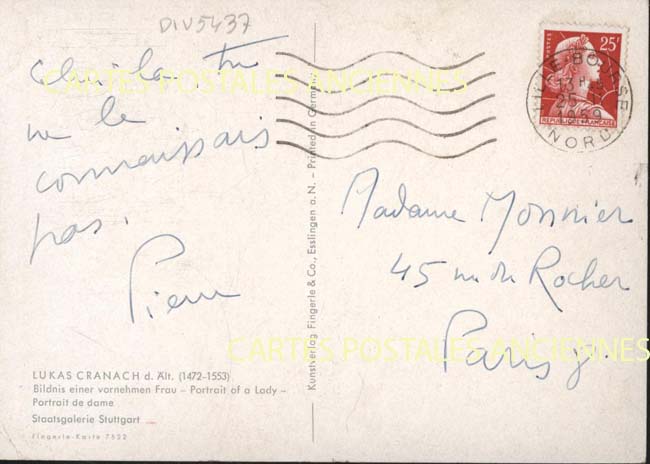 DIV5437
celui-là tu
ne le
connaissais
pas.
Pierre
LUKAS CRANACH d. Ält. (1472–1553)
Bildnis einer vornehmen Frau – Portrait of a Lady –
Portrait de dame
Staatsgalerie Stuttgart
Fingerle-Karte 7522
Kunstverlag Fingerle & Co., Esslingen a. N. – Printed in Germany
25F
POSTES
REPUBLIQUE FRANÇAISE
LILLE BOURSE
13H
25
1959
NORD
Madame Monnier
45 rue du Rocher
Paris 8
CARTES POSTALES ANCIENNES
CARTES POSTALES ANCIENNES